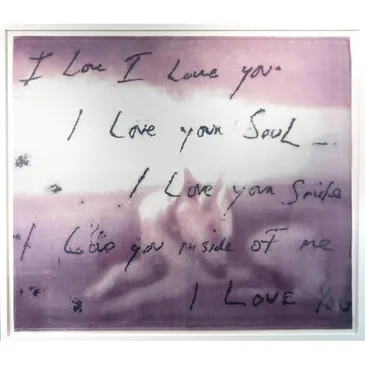 I Love I Love you
I Love your Soul
I Love your Smile
I Love you inside of me
I LOVE You